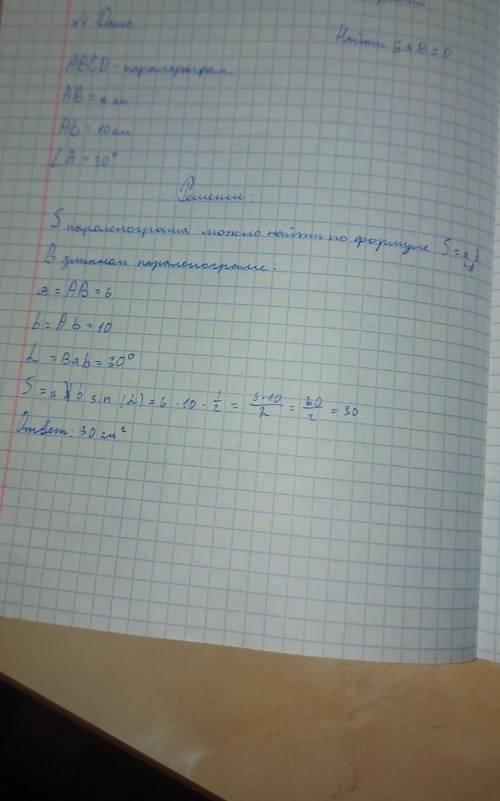 Дано.
Найти SABCD
ABCD - паралеграм.
AB = см
Ab = 10 см
∠A = 30°
Решение:
S паралеограма можно найти по формуле S =
В данном паралеограме:
a = AB = 6
b = Ab = 10
L = Bab = 30°
S = a b sin (L) = 6 · 10 · 1/2 = 10/2 = 30/2 = 30
Ответ: 30 см²